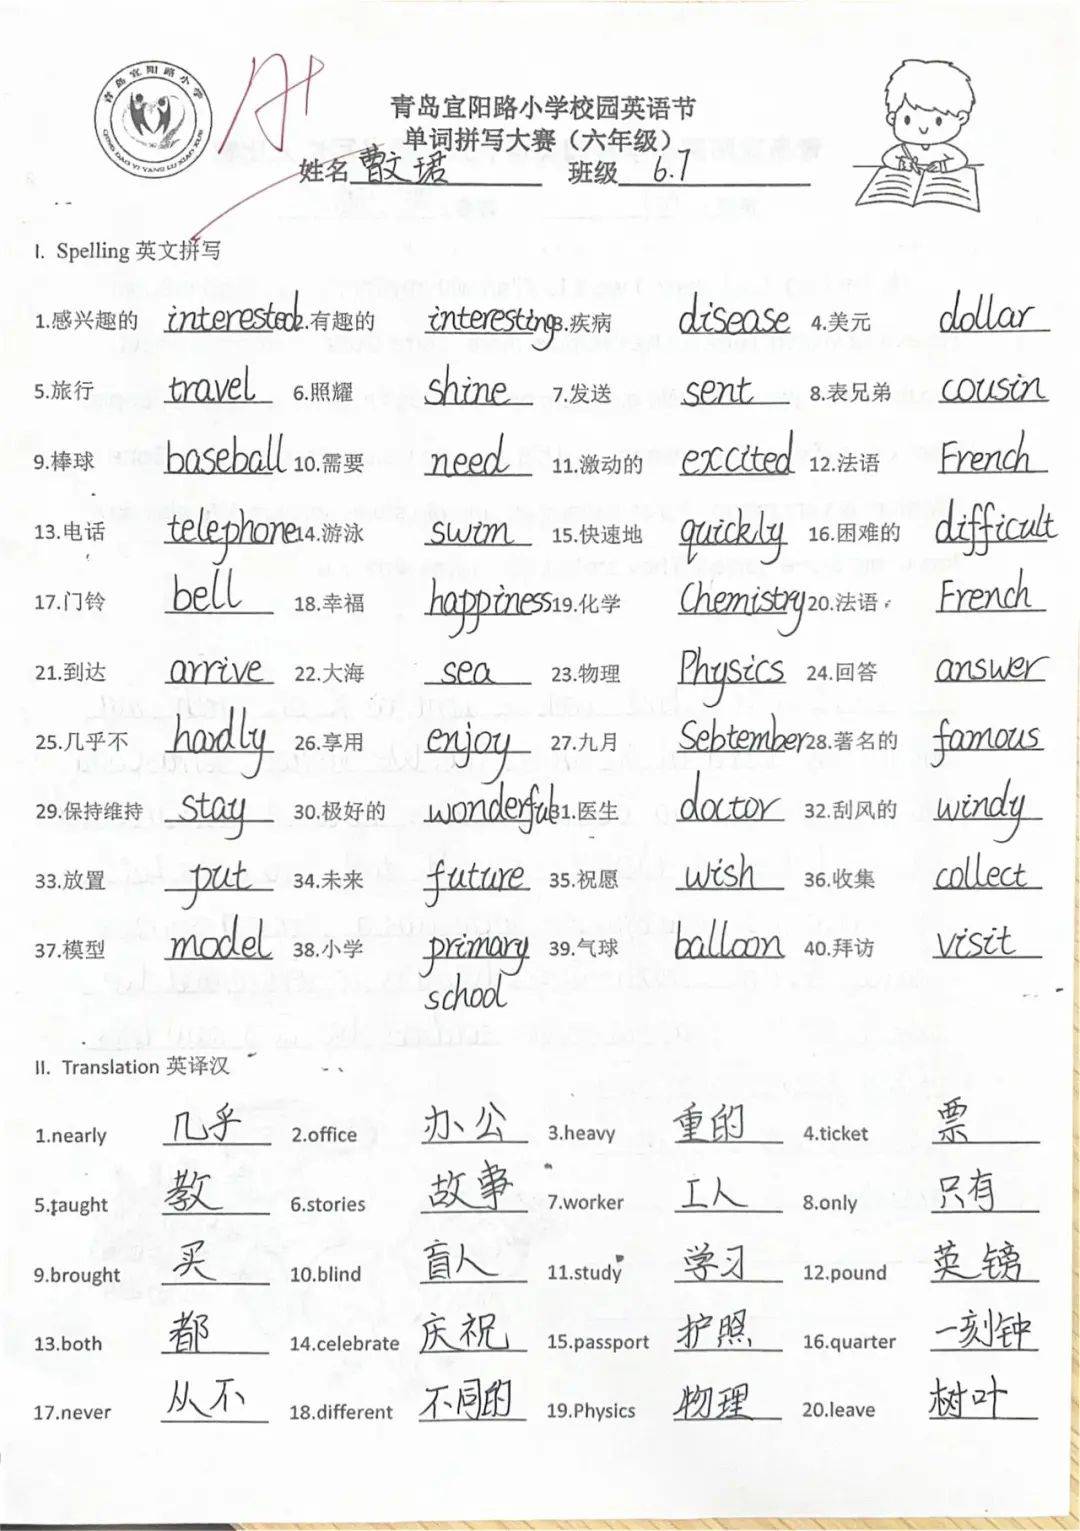 青岛宜阳路小学
QING DAO YI YANG LU XIAO XUE
A+
青岛宜阳路小学校园英语节
单词拼写大赛（六年级）
姓名 曹文珺 班级 6.1
I. Spelling 英文拼写
1.感兴趣的 interested 2.有趣的 interesting 3.疾病 disease 4.美元 dollar
5.旅行 travel 6.照耀 shine 7.发送 sent 8.表兄弟 cousin
9.棒球 baseball 10.需要 need 11.激动的 excited 12.法语 French
13.电话 telephone 14.游泳 swim 15.快速地 quickly 16.困难的 difficult
17.门铃 bell 18.幸福 happiness 19.化学 Chemistry 20.法语 French
21.到达 arrive 22.大海 sea 23.物理 Physics 24.回答 answer
25.几乎不 hardly 26.享用 enjoy 27.九月 Sebtember 28.著名的 famous
29.保持维持 stay 30.极好的 wonderful 31.医生 doctor 32.刮风的 windy
33.放置 put 34.未来 future 35.祝愿 wish 36.收集 collect
37.模型 model 38.小学 primary 39.气球 balloon 40.拜访 visit
school
II. Translation 英译汉
1.nearly 几乎 2.office 办公 3.heavy 重的 4.ticket 票
5.taught 教 6.stories 故事 7.worker 工人 8.only 只有
9.brought 买 10.blind 盲人 11.study 学习 12.pound 英镑
13.both 都 14.celebrate 庆祝 15.passport 护照 16.quarter 一刻钟
17.never 从不 18.different 不同的 19.Physics 物理 20.leave 树叶